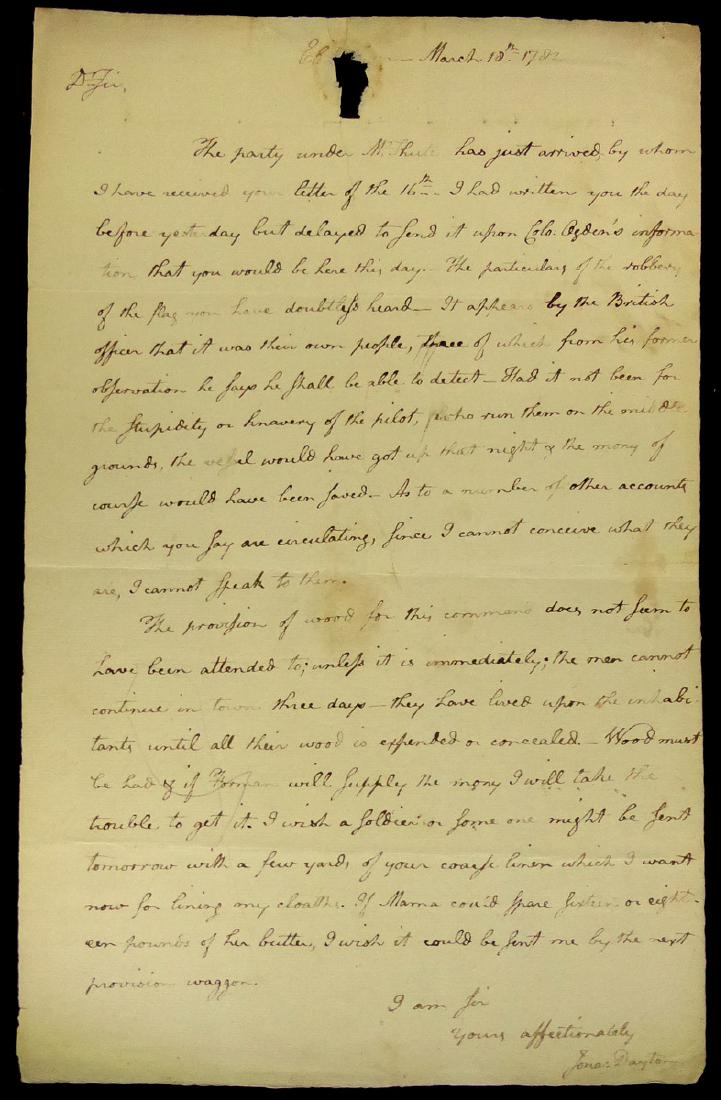 March 18th 1782
Dr Sir,
The party under Mr. has just arrived, by whom
I have received your letter of the 16th. I had written you the day
before yesterday but delayed to send it upon Colo. Ogden's informa
tion that you would be here this day. The particulars of the robbery
of the flag you have doubtless heard — It appears by the British
officer that it was their own people, of which from his former
observation he says he shall be able to detect — Had it not been for
the stupidity or knavery of the pilot, who run them on the middle
grounds, the vessel would have got up that night & the mony of
course would have been saved — As to a number of other accounts
which you say are circulating, since I cannot conceive what they
are, I cannot speak to them.
The provision of wood for this command does not seem to
have been attended to; unless it is immediately, the men cannot
continue in town three days — they have lived upon the inhabi-
tants until all their wood is expended or concealed. — Wood must
be had & if Forman will supply the mony I will take the
trouble to get it. I wish a soldier or some one might be sent
tomorrow with a few yards of your coarse linen which I want
now for lining my cloaths. If Mama could spare sixteen or eight-
een pounds of her butter, I wish it could be sent me by the next
provision waggon.
I am sir
Yours affectionately
Jona: Dayton